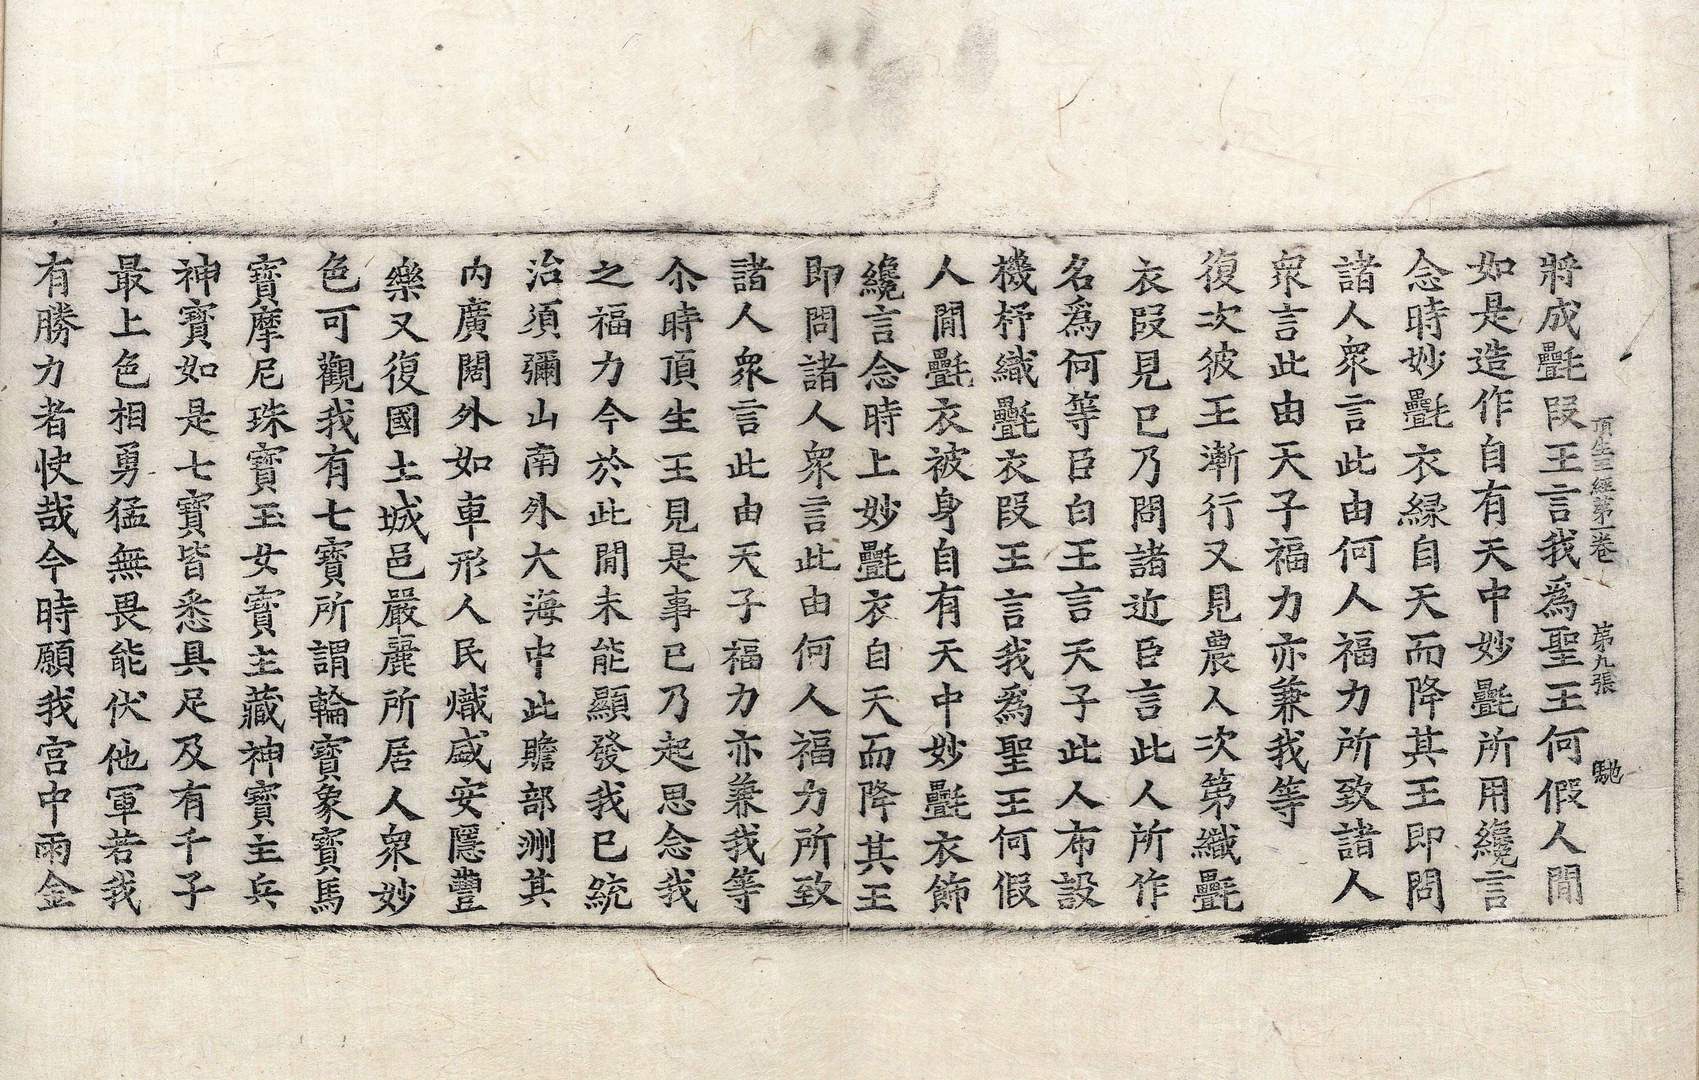 將成㲲段王言我爲聖王何假人間
頂生王經第一卷　第九張　馳
如是造作自有天中妙㲲所用纔言
念時妙㲲衣緣自天而降其王即問
諸人衆言此由何人福力所致諸人
衆言此由天子福力亦兼我等
復次彼王漸行又見農人次第織㲲
衣段見已乃問諸近臣言此人所作
名爲何等臣白王言天子此人布設
機杼織㲲衣段王言我爲聖王何假
人間㲲衣被身自有天中妙㲲衣飾
纔言念時上妙㲲衣自天而降其王
即問諸人衆言此由何人福力所致
諸人衆言此由天子福力亦兼我等
尒時頂生王見是事已乃起思念我
之福力今於此間未能顯發我已統
治須彌山南外大海中此贍部洲其
内廣闊外如車形人民熾盛安隱豐
樂又復國土城邑嚴麗所居人衆妙
色可觀我有七寶所謂輪寶象寶馬
寶摩尼珠寶玉女寶主藏神寶主兵
神寶如是七寶皆悉具足及有千子
最上色相勇猛無畏能伏他軍若我
有勝力者快哉今時願我宮中雨金